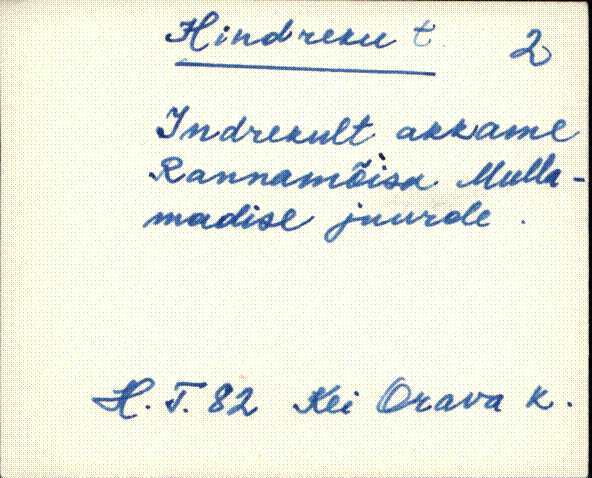 Hindreku t 2
Indrekult akkame
Rannamõisa Mulla-
madise juurde.
H. T. 82 Kei Orava k.